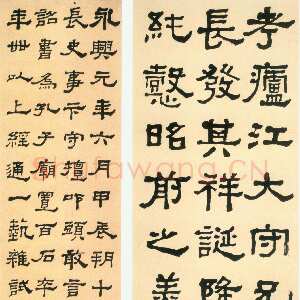 考廬江大守兄
長發其祥誕降
純懿昭前之美
永興元年六月甲辰朔十
長史事卞守擅叩頭敢言
詔書為孔子廟置百石卒
年卌以上經通一藝雜試
Shufawang.CN